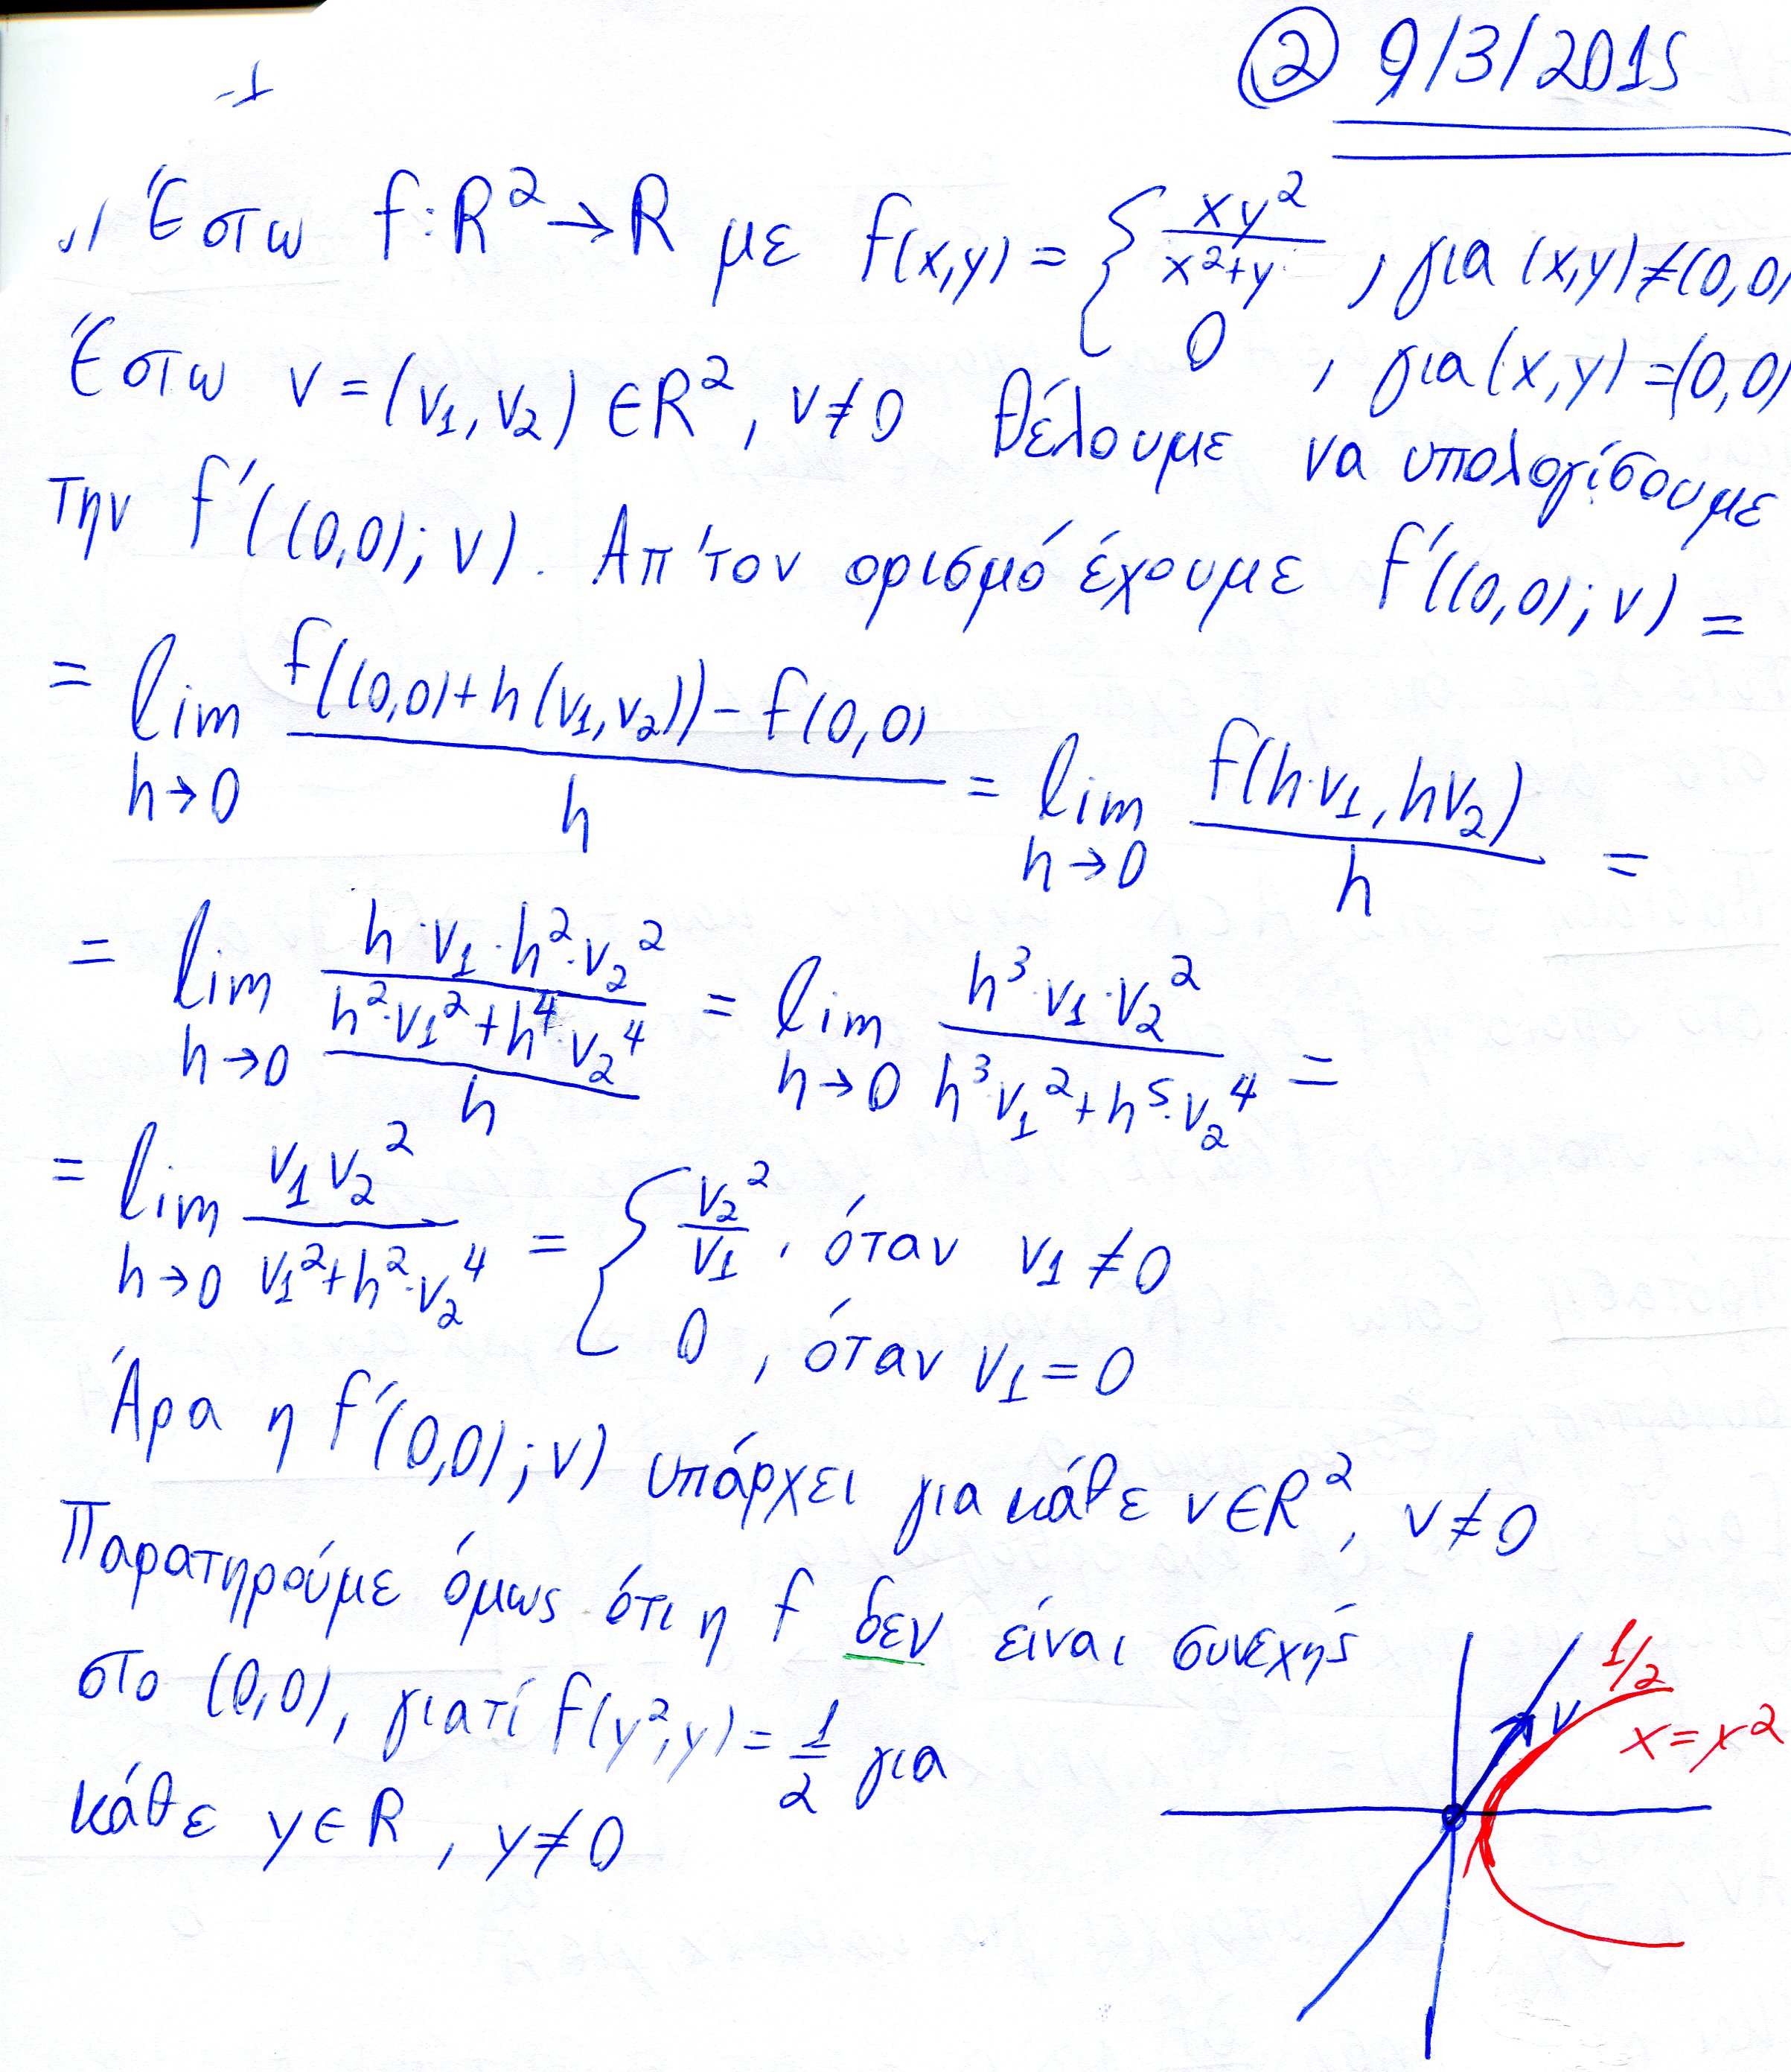 ② 9/3/2015
-1
Έστω f:R²→R με f(x,y) = { xy²/(x²+y) , για (x,y)≠(0,0)
0 , για (x,y)=(0,0)
Έστω v=(v₁,v₂)∈R², v≠0 θέλουμε να υπολογίσουμε
την f΄((0,0);v). Απ'τον ορισμό έχουμε f΄((0,0);v) =
= lim h→0 (f((0,0)+h(v₁,v₂))-f(0,0))/h = lim h→0 f(h·v₁,hv₂)/h =
= lim h→0 ((h·v₁·h²·v₂²)/(h²·v₁²+h⁴·v₂⁴))/h = lim h→0 (h³·v₁·v₂²)/(h³·v₁²+h⁵·v₂⁴) =
= lim h→0 (v₁v₂²)/(v₁²+h²·v₂⁴) = { v₂²/v₁ , όταν v₁≠0
0 , όταν v₁=0
Άρα η f΄(0,0);v) υπάρχει για κάθε v∈R², v≠0
Παρατηρούμε όμως ότι η f δεν είναι συνεχής
στο (0,0), γιατί f(y²,y)=1/2 για
κάθε y∈R, y≠0
1/2
v
x=x²